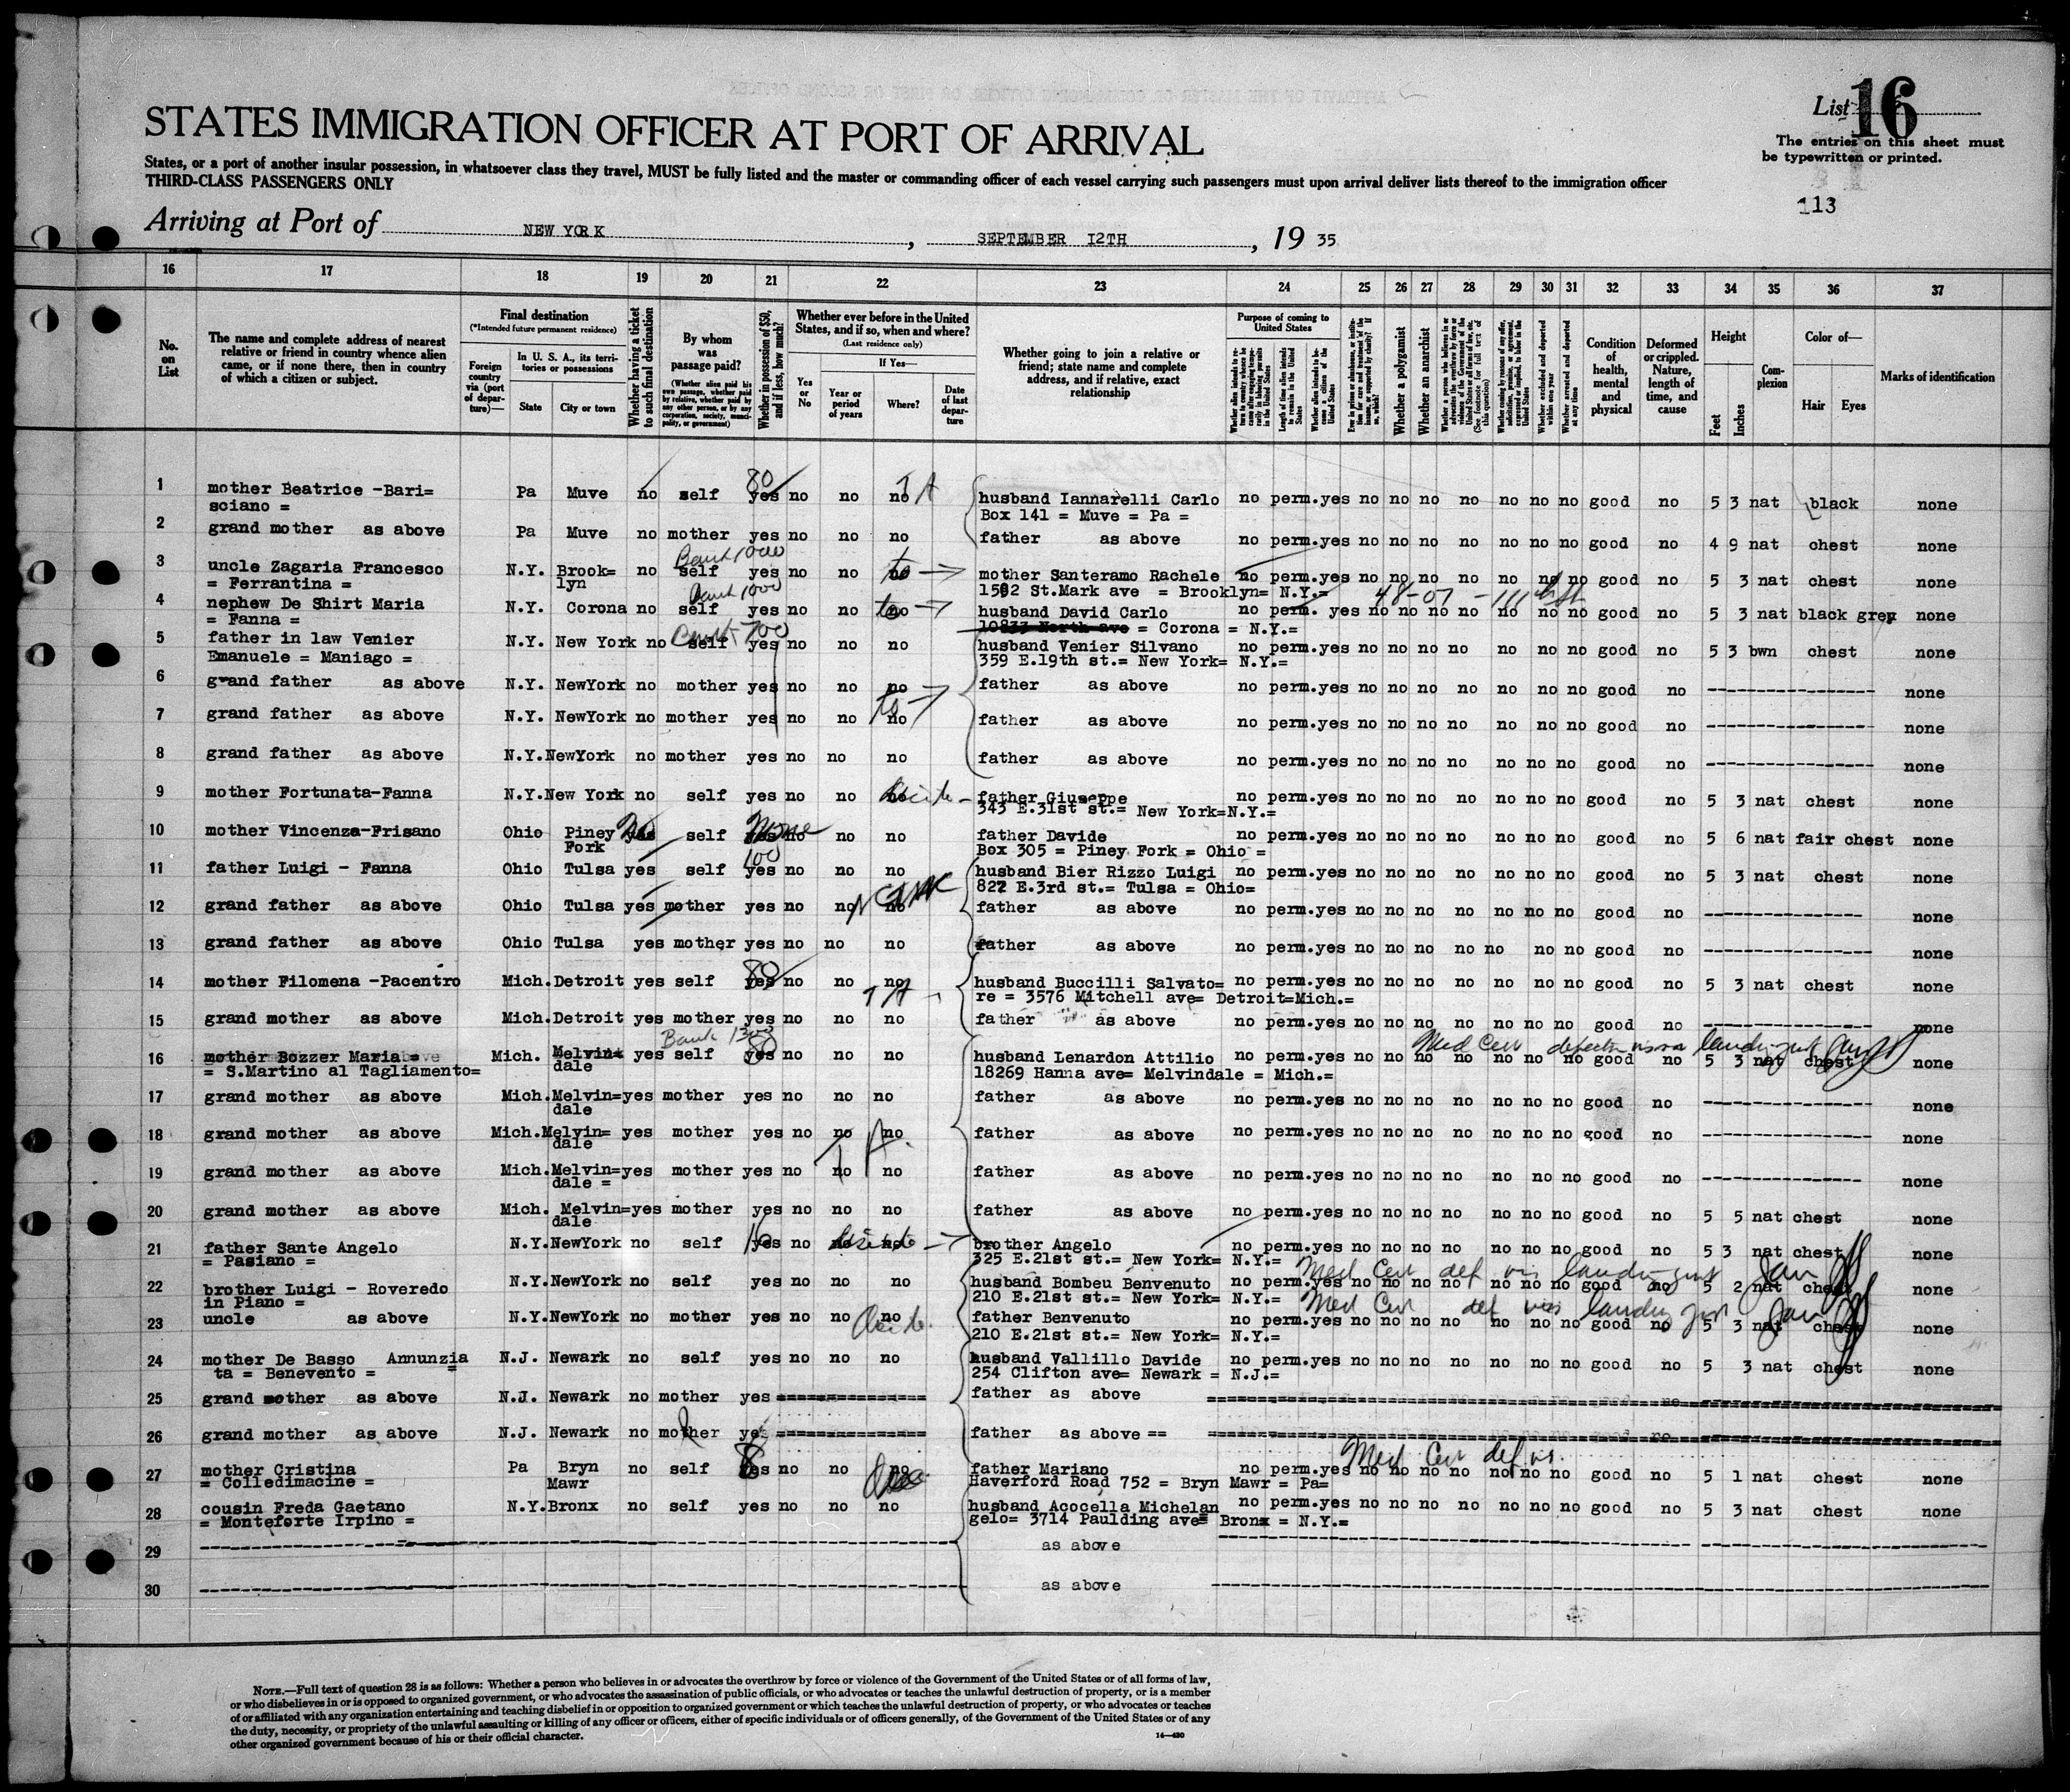 List 16
STATES IMMIGRATION OFFICER AT PORT OF ARRIVAL
The entries on this sheet must
be typewritten or printed.
States, or a port of another insular possession, in whatsoever class they travel, MUST be fully listed and the master or commanding officer of each vessel carrying such passengers must upon arrival deliver lists thereof to the immigration officer
THIRD-CLASS PASSENGERS ONLY
113
Arriving at Port of NEW YORK, SEPTEMBER 12TH, 19 35
16 17 18 19 20 21 22 23 24 25 26 27 28 29 30 31 32 33 34 35 36 37
No. on List
The name and complete address of nearest relative or friend in country whence alien came, or if none there, then in country of which a citizen or subject.
Final destination
(*Intended future permanent residence)
Foreign country via (port of departure)—
In U. S. A., its territories or possessions
State City or town
Whether having a ticket to such final destination
By whom was passage paid?
(Whether alien paid his own passage, whether paid by relative, whether paid by any other person, or by any corporation, society, municipality, or government)
Whether in possession of $50, and if less, how much?
Whether ever before in the United States, and if so, when and where?
(Last residence only)
Yes or No
If Yes—
Year or period of years
Where?
Date of last departure
Whether going to join a relative or friend; state name and complete address, and if relative, exact relationship
Purpose of coming to United States
Length of time alien intends to remain in the United States
Whether alien intends to become a citizen of the United States
Whether a polygamist
Whether an anarchist
Whether excluded and deported within one year
Whether arrested and deported at any time
Condition of health, mental and physical
Deformed or crippled. Nature, length of time, and cause
Height
Feet Inches
Complexion
Color of—
Hair Eyes
Marks of identification
80
1 mother Beatrice -Bari= Pa Muve no self yes no no no husband Iannarelli Carlo no perm.yes no no no no no no no good no 5 3 nat black none
sciano = Box 141 = Muve = Pa =
2 grand mother as above Pa Muve no mother yes no no no father as above no perm.yes no no no no no no no good no 4 9 nat chest none
Bank 1000
3 uncle Zagaria Francesco N.Y. Brook= no self yes no no no mother Santeramo Rachele no perm.yes no no no no no no no good no 5 3 nat chest none
= Ferrantina = lyn 1502 St.Mark ave = Brooklyn= N.Y.=
Bank 1000 48-07 -111
4 nephew De Shirt Maria N.Y. Corona no self yes no no no husband David Carlo no perm. yes no no no no no no no good no 5 3 nat black grey none
= Fanna = 10833 North ave = Corona = N.Y.=
Bank 700
5 father in law Venier N.Y. New York no self yes no no no husband Venier Silvano no perm.yes no no no no no no no good no 5 3 bwn chest none
Emanuele = Maniago = 359 E.19th st.= New York= N.Y.=
6 grand father as above N.Y. NewYork no mother yes no no no father as above no perm.yes no no no no no no no good no ---------- none
7 grand father as above N.Y. NewYork no mother yes no no no father as above no perm.yes no no no no no no no good no ---------- none
8 grand father as above N.Y.NewYork no mother yes no no no father as above no perm.yes no no no no no no no good no ---------- none
9 mother Fortunata-Fanna N.Y.New York no self yes no no no father Giuseppe no perm.yes no no no no no no no good no 5 3 nat chest none
343 E.31st st.= New York=N.Y.=
No None
10 mother Vincenza-Frisano Ohio Piney yes self yes no no no father Davide no perm.yes no no no no no no no good no 5 6 nat fair chest none
Fork Box 305 = Piney Fork = Ohio =
100
11 father Luigi - Fanna Ohio Tulsa yes self yes no no no husband Bier Rizzo Luigi no perm.yes no no no no no no no good no 5 3 nat chest none
827 E.3rd st.= Tulsa = Ohio=
12 grand father as above Ohio Tulsa yes mother yes no no no father as above no perm.yes no no no no no no no good no ---------- none
13 grand father as above Ohio Tulsa yes mother yes no no no father as above no perm.yes no no no no no no no good no ---------- none
80
14 mother Filomena -Pacentro Mich.Detroit yes self yes no no no husband Buccilli Salvato= no perm.yes no no no no no no no good no 5 3 nat chest none
re = 3576 Mitchell ave= Detroit=Mich.=
15 grand mother as above Mich.Detroit yes mother yes no no no father as above no perm.yes no no no no no no no good no ---------- none
Bank 1300 80 Med Cert
16 mother Bozzer Maria = Mich. Melvin= yes self yes no no no husband Lenardon Attilio no perm.yes no no no no no no no good no 5 3 nat chest none
= S.Martino al Tagliamento= dale 18269 Hanna ave= Melvindale = Mich.=
17 grand mother as above Mich.Melvin=yes mother yes no no no father as above no perm.yes no no no no no no no good no ---------- none
dale
18 grand mother as above Mich.Melvin= yes mother yes no no no father as above no perm.yes no no no no no no no good no ---------- none
dale
19 grand mother as above Mich.Melvin=yes mother yes no no no father as above no perm.yes no no no no no no no good no ---------- none
dale =
20 grand mother as above Mich. Melvin=yes mother yes no no no father as above no perm.yes no no no no no no no good no 5 5 nat chest none
dale
21 father Sante Angelo N.Y.NewYork no self yes no no no brother Angelo no perm.yes no no no no no no no good no 5 3 nat chest none
= Pasiano = 325 E.21st st.= New York= N.Y.=
Med Cert def vis
22 brother Luigi - Roveredo N.Y.NewYork no self yes no no no husband Bombeu Benvenuto no perm.yes no no no no no no no good no 5 2 nat chest none
in Piano = 210 E.21st st.= New York= N.Y.=
Med Cert def vis
23 uncle as above N.Y.NewYork no mother yes no no no father Benvenuto no perm.yes no no no no no no no good no 5 3 nat chest none
210 E.21st st.= New York= N.Y.=
24 mother De Basso Annunzia N.J. Newark no self yes no no no husband Vallillo Davide no perm.yes no no no no no no no good no 5 3 nat chest none
ta = Benevento = = 254 Clifton ave= Newark = N.J.=
25 grand mother as above N.J. Newark no mother yes ========== father as above ==========
26 grand mother as above N.J. Newark no mother yes ========== father as above == ==========
Med Cert def vis.
27 mother Cristina Pa Bryn no self yes no no no father Mariano no perm.yes no no no no no no no good no 5 1 nat chest none
= Colledimacine = Mawr Haverford Road 752 = Bryn Mawr = Pa=
28 cousin Freda Gaetano N.Y.Bronx no self yes no no no husband Acocella Michelan no perm.yes no no no no no no no good no 5 3 nat chest none
= Monteforte Irpino = gelo= 3714 Paulding ave= Bronx = N.Y.=
29 ---------- as above ----------
30 ---------- as above ----------
NOTE.—Full text of question 28 is as follows: Whether a person who believes in or advocates the overthrow by force or violence of the Government of the United States or of all forms of law,
or who disbelieves in or is opposed to organized government, or who advocates the assassination of public officials, or who advocates or teaches the unlawful destruction of property, or is a member
of or affiliated with any organization entertaining and teaching disbelief in or opposition to organized government or which teaches the unlawful destruction of property, or who advocates or teaches
the duty, necessity, or propriety of the unlawful assaulting or killing of any officer or officers, either of specific individuals or of officers generally, of the Government of the United States or of any
other organized government because of his or their official character.
14—430